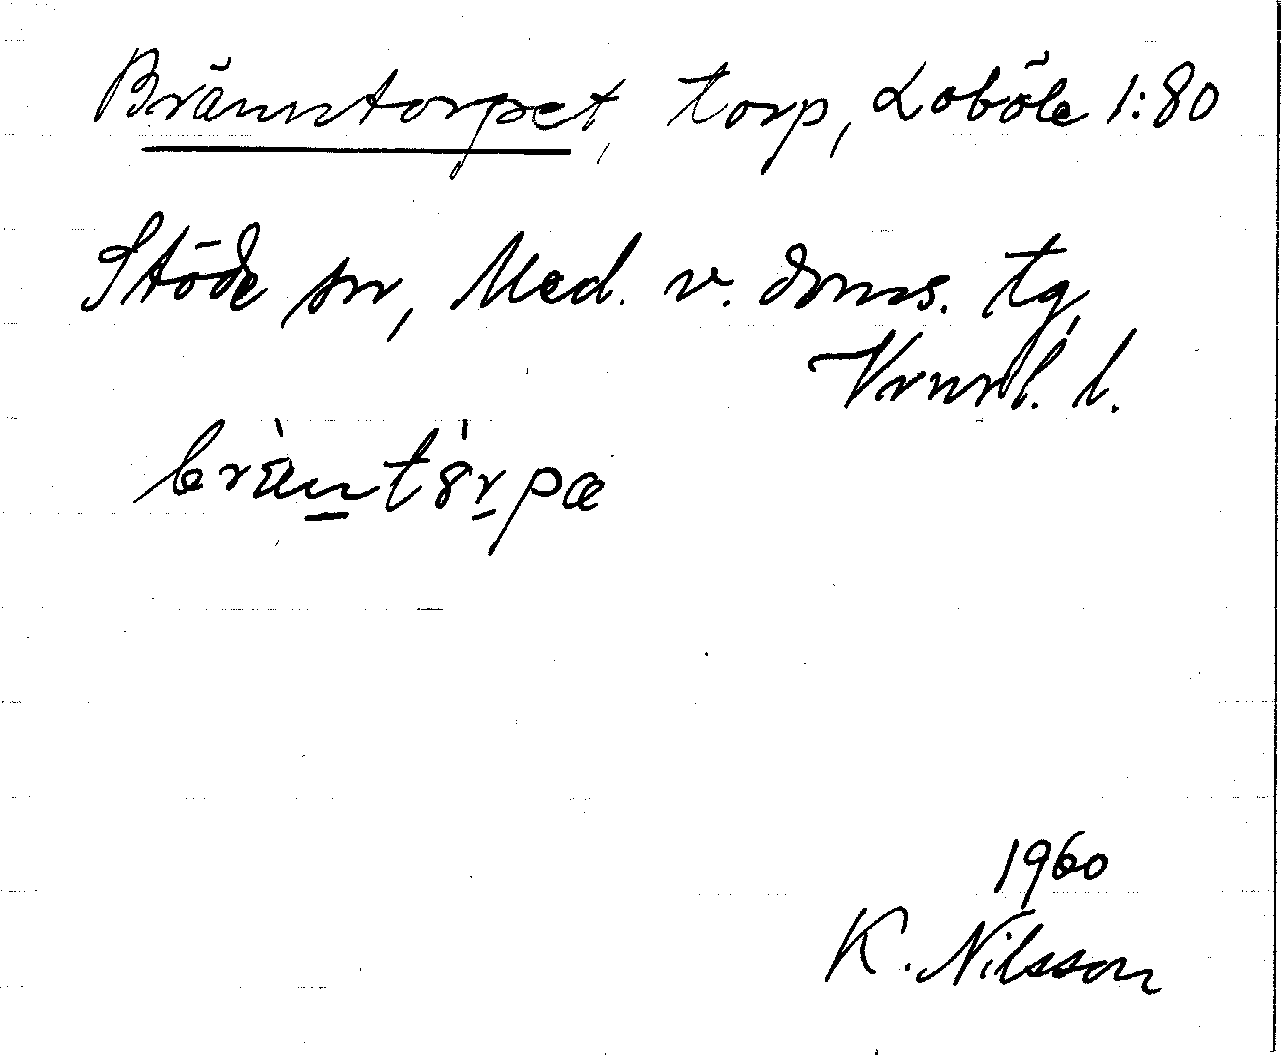 Bränntorpet, torp, Loböle 1:80
Stöde sn, Med. v. doms. tg,
Vrnrl. l.
bràn̲tò̀r̲pæ
1960
K. Nilsson